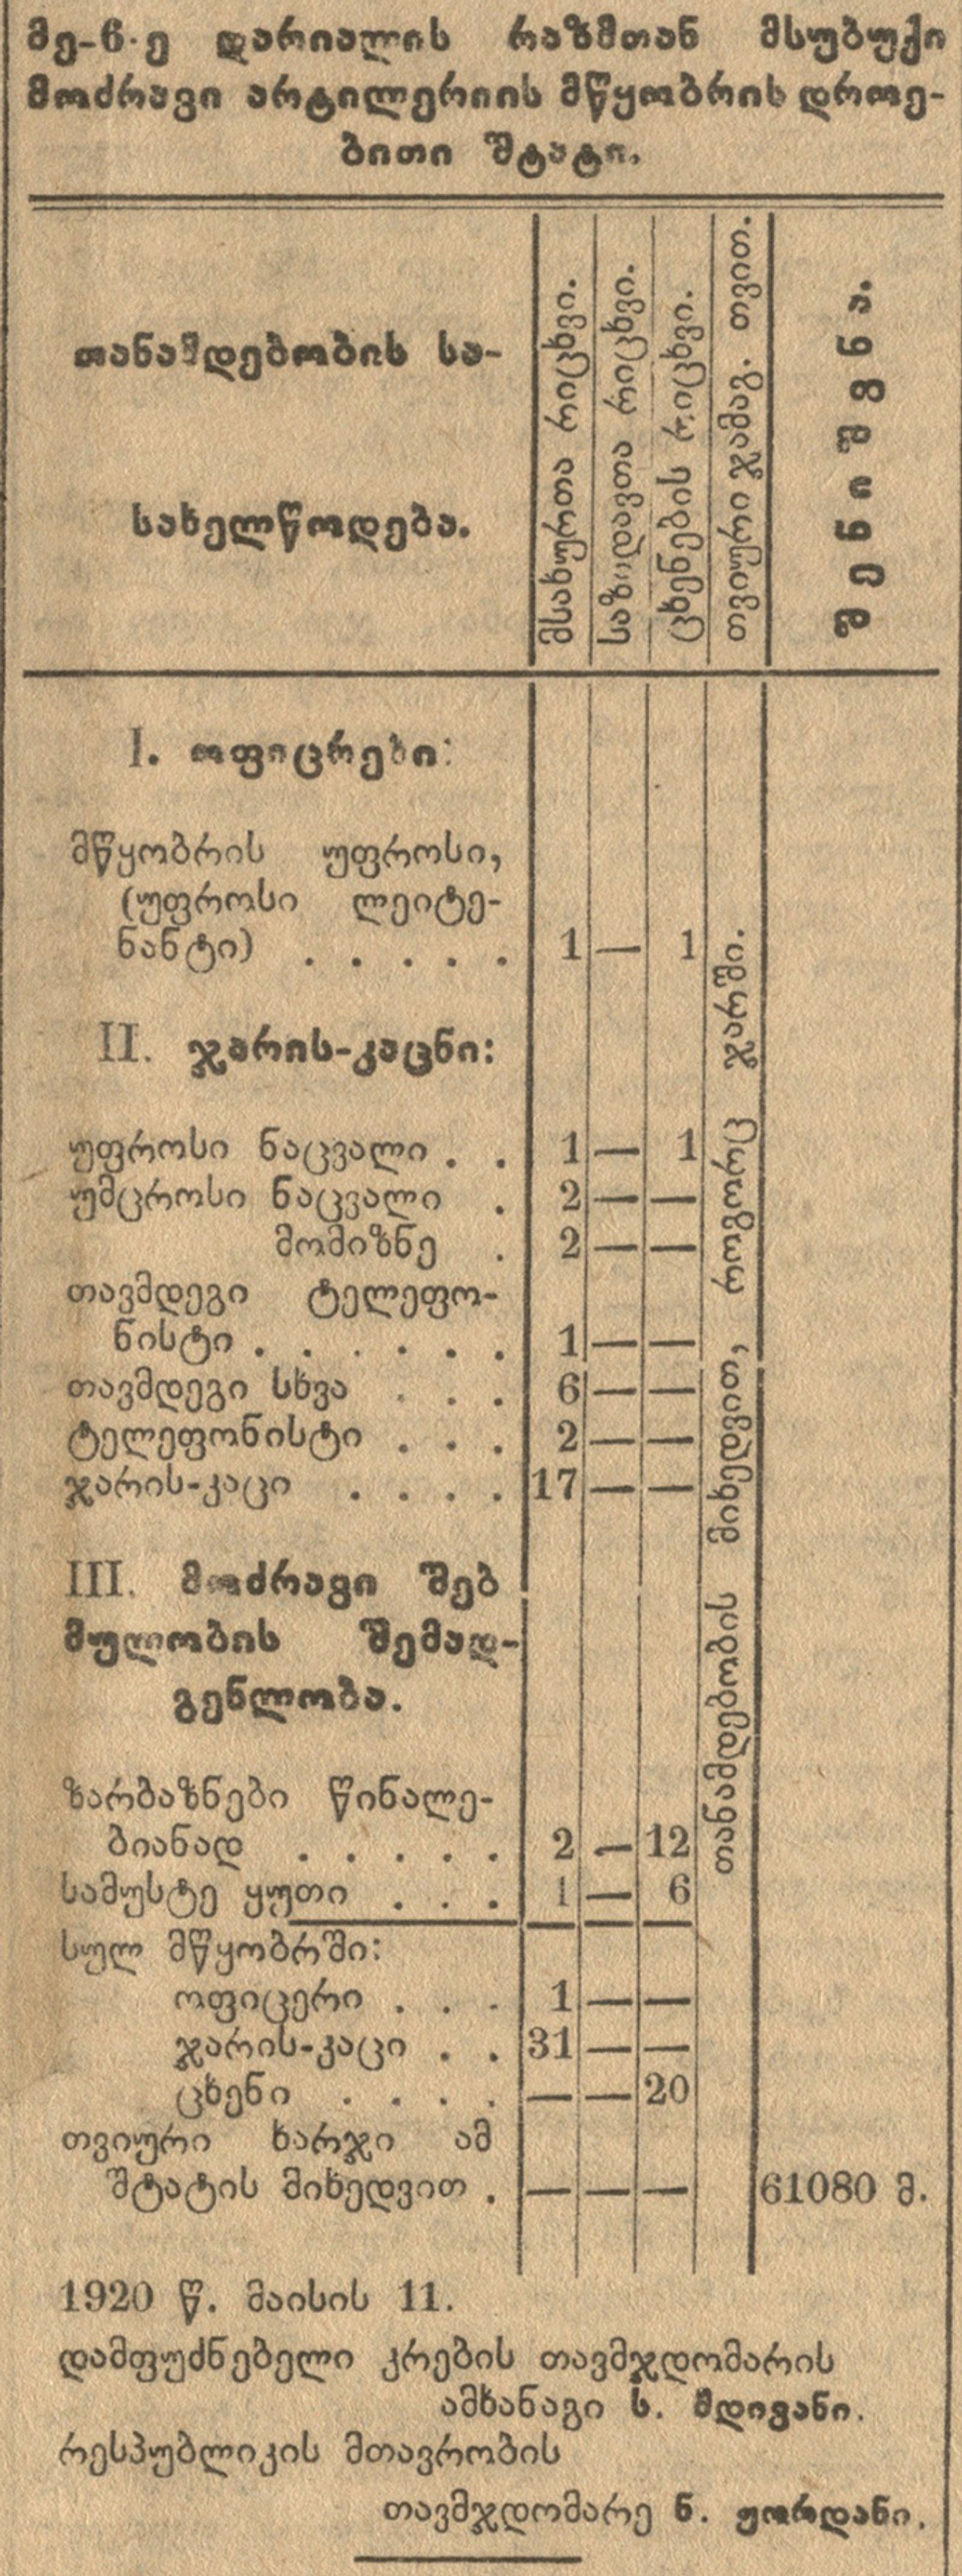 მე-6-ე დარიალის რაზმთან მსუბუქი
მოძრავი არტილერიის მწყობრის დროე-
ბითი შტატი.
თანამდებობის სა-
სახელწოდება.
მსახურთა რიცხვი.
საზიდავთა რიცხვი.
ცხენების რიცხვი.
თვიური ჯამაგ. თვით.
შენიშვნა.
I. ოფიცრები:
მწყობრის უფროსი,
(უფროსი ლეიტე-
ნანტი) . . . . . 1 — 1
II. ჯარის-კაცნი:
უფროსი ნაცვალი . . 1 — 1
უმცროსი ნაცვალი . 2 — —
მომიზნე . 2 — —
თავმდეგი ტელეფო-
ნისტი . . . . . . 1 — —
თავმდეგი სხვა . . . 6 — —
ტელეფონისტი . . . 2 — —
ჯარის-კაცი . . . . 17 — —
III. მოძრავი შებ
მულობის შემად-
გენლობა.
ზარბაზნები წინალე-
ბიანად . . . . . 2 — 12
სამუსტე ყუთი . . . 1 — 6
თანამდებობის მიხედვით, როგორც ჯარში.
სულ მწყობრში:
ოფიცერი . . . 1 — —
ჯარის-კაცი . . 31 — —
ცხენი . . . . — — 20
თვიური ხარჯი ამ
შტატის მიხედვით . — — — 61080 მ.
1920 წ. მაისის 11.
დამფუძნებელი კრების თავმჯდომარის
ამხანაგი ს. მდივანი.
რესპუბლიკის მთავრობის
თავმჯდომარე ნ. ჟორდანი.